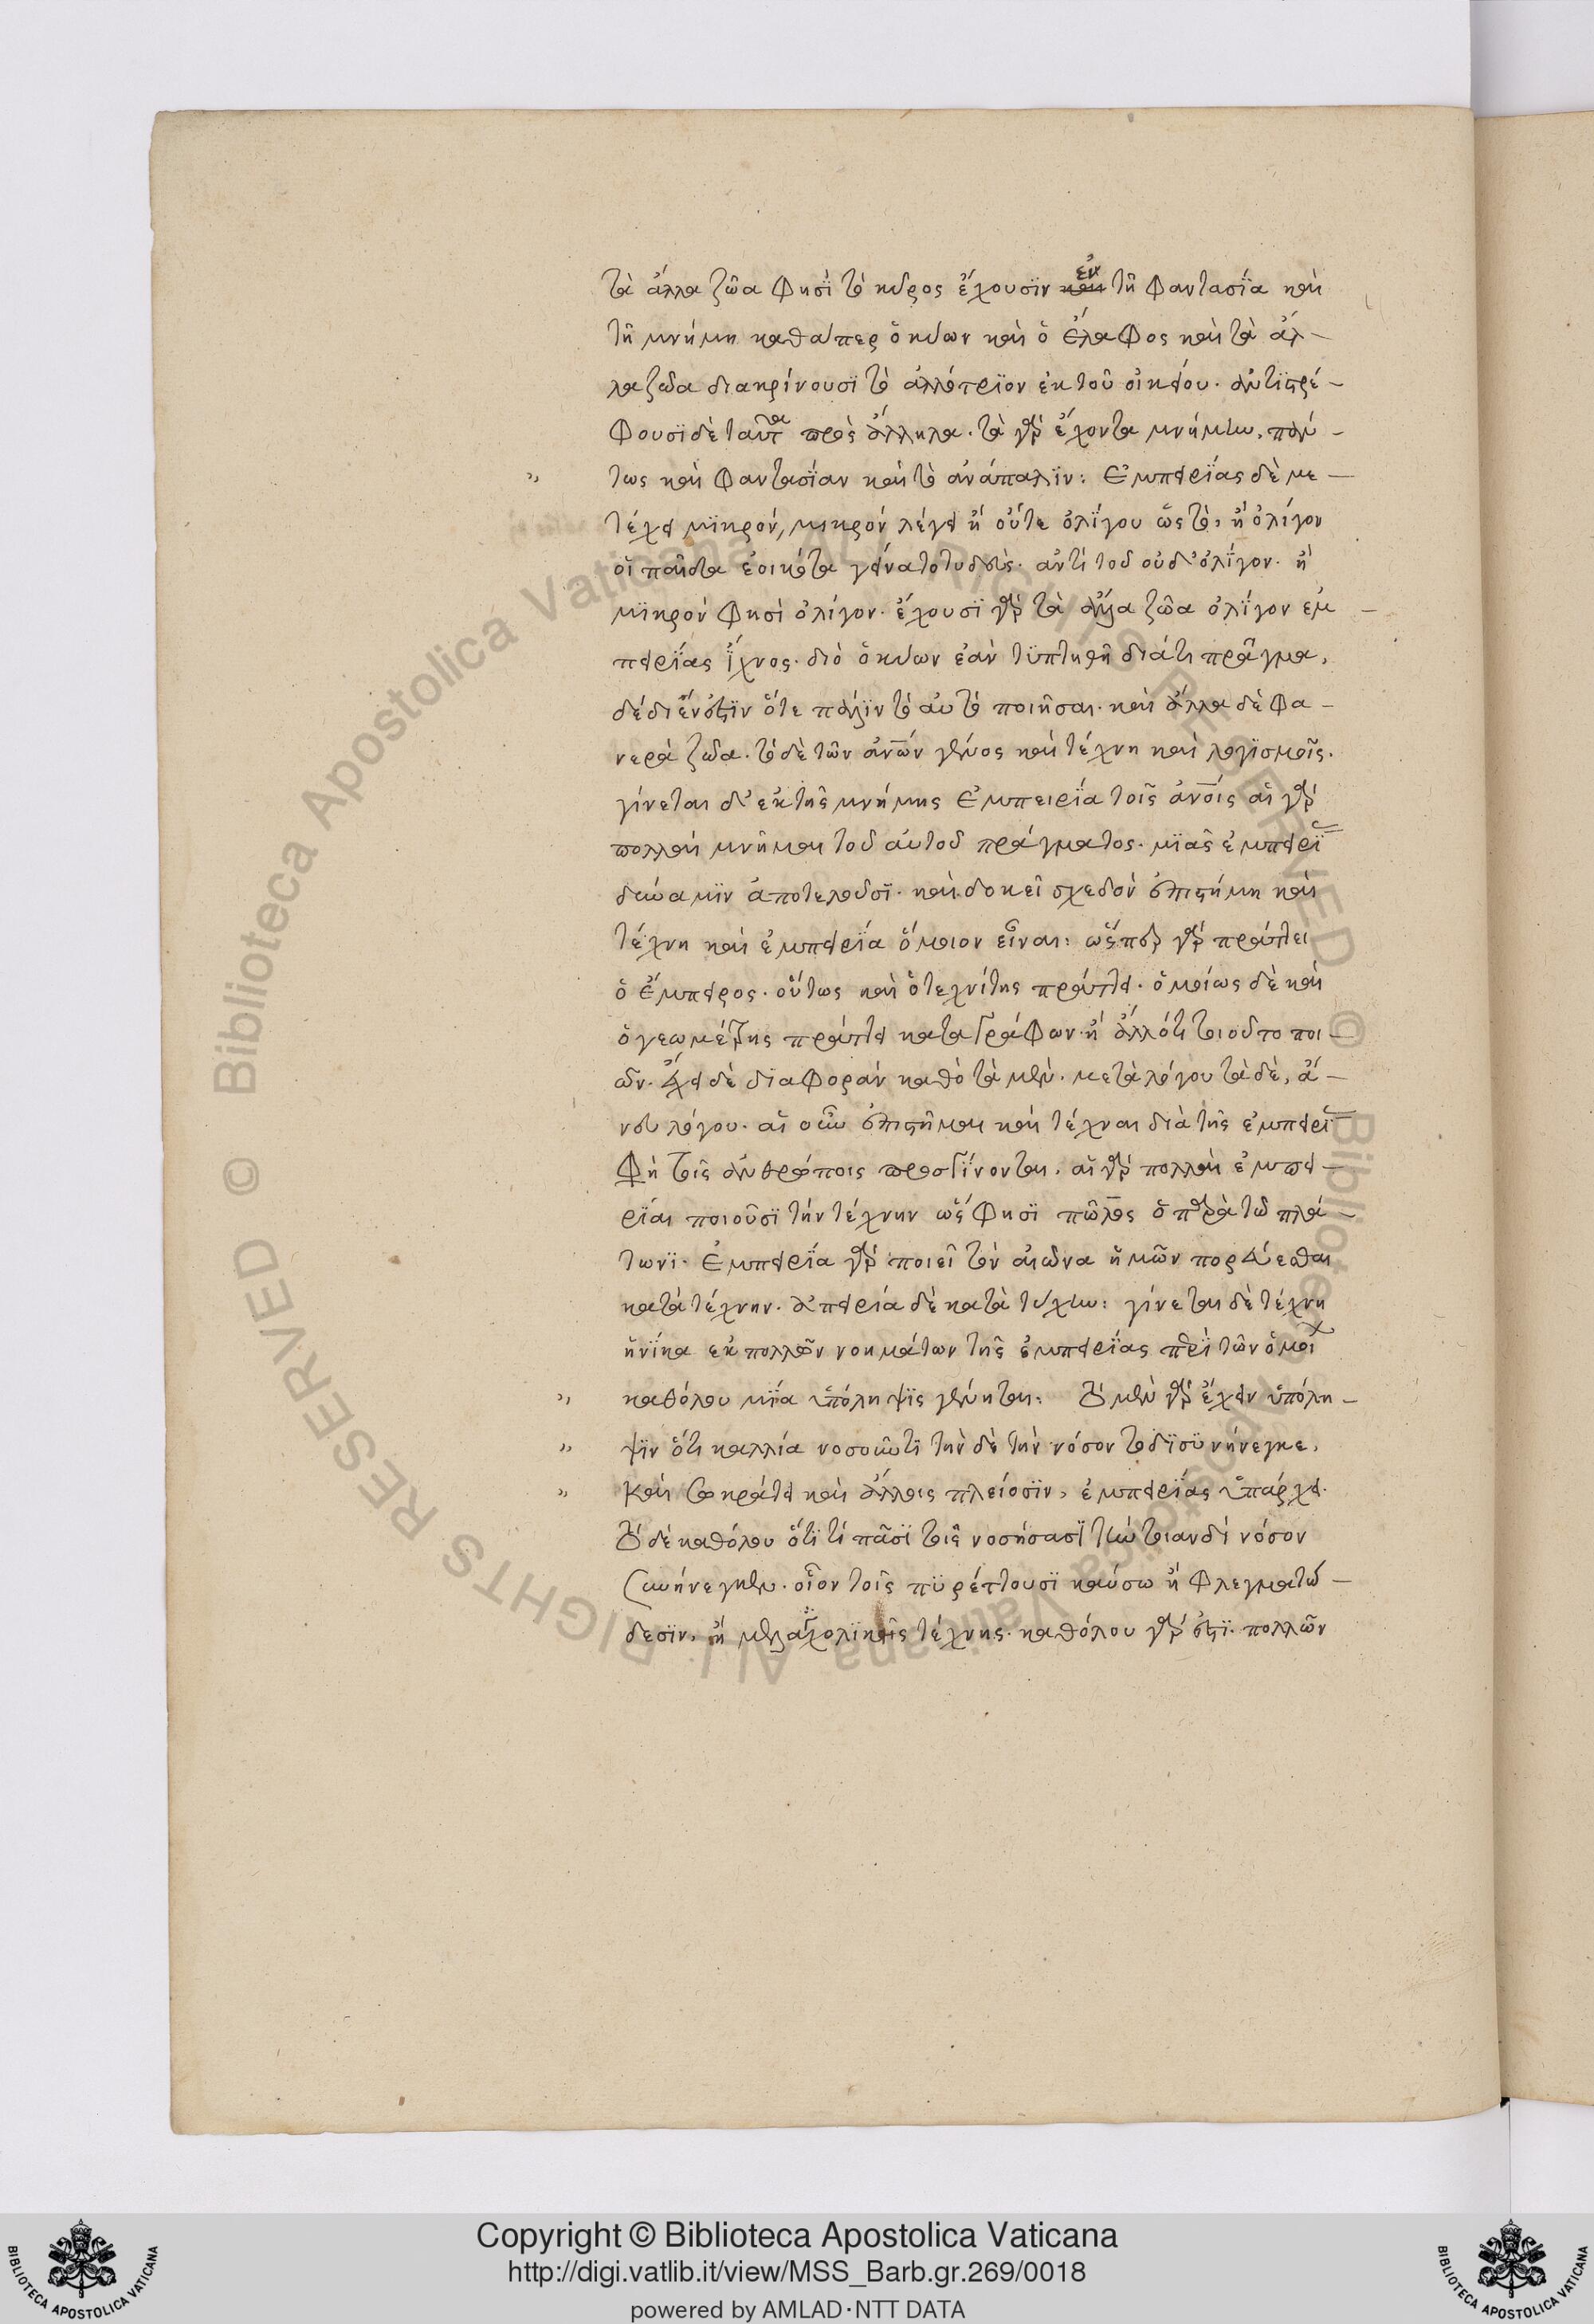 τὰ ἄλλα ζῶα φησὶ τὸ κῦρος ἔχουσϊν ἐν τῆ φαντασΐα καὶ
τῆ μνήμη καθάπερ ὁ κύων καὶ ὁ ἔλαφος καὶ τὰ ἄλ-
λα ζῶα διακρίνουσϊ τὸ ἀλλότρϊον ἐκ τοῦ οἰκείου. ἀντϊστρέ-
φουσϊ δὲ ταῦτα πρὸς ἄλληλα. τὰ γὰρ ἔχοντα μνήμην, πάν-
τως καὶ φαντασΐαν καὶ τὸ ἀνάπαλϊν: Ἐμπειρΐας δὲ με-
τέχει μϊκρόν, μικρόν λέγει ἢ οὔτε ὀλΐγου ὥς τὸ, ἢ ὀλίγον
οἷ παῖδα ἐοικότα γείνατο τυδεύς. ἀντὶ τοῦ οὐδ' ὀλΐγον. ἢ
μϊκρόν φησὶ ὀλίγον. ἔχουσϊ γὰρ τὰ ἄλλα ζῶα ὀλΐγον ἐμ-
πειρΐας ἴχνος. διὸ ὁ κύων ἐὰν τϋπτηθῆ διάτι πρᾶγμα,
δέδιέν ἐστϊν ὅτε πάλϊν τὸ αὐτὸ ποιῆσαι. καὶ ἄλλα δὲ φα-
νερὰ ζῶα. τὸ δὲ τῶν ἀνων γένος καὶ τέχνη καὶ λογϊσμοῖς.
γίνεται δ' ἐκ τῆς μνήμης ἐμπειρΐα τοῖς ἀνοις αἱ γὰρ
πολλαὶ μνῆμαι τοῦ αὐτοῦ πράγματος. μϊᾶς ἐμπειρϊ
δύναμϊν ἀποτελοῦσϊ. καὶ δοκεῖ σχεδόν ἐπιστήμη καὶ
τέχνη καὶ ἐμπειρΐα ὅμοιον εἶναι: ὥσπερ γὰρ πράττει
ὁ ἔμπειρος. οὕτως καὶ ὁ τεχνίτης πράττει. ὁμοίως δὲ καὶ
ὁ γεωμέτρης πράττει καταγράφων. ἢ ἄλλότι τιοῦτο ποι-
ῶν. ἔχει δὲ δϊαφοράν καθὸ τὰ μὲν. μετὰ λόγου τὰ δὲ, ἄ-
νευ λόγου. αἱ οὖν ἐπιστῆμαι καὶ τέχναι διὰ τῆς ἐμπειρϊ
φὴ τοῖς ἀνθρώποις προσγΐνονται. αἱ γὰρ πολλαὶ ἐμπει-
ρΐαι ποιοῦσϊ τὴν τέχνην ὥς φησϊ πῶλος ὁ παρὰ τῶ πλά-
τωνϊ. Ἐμπειρΐα γὰρ ποιεῖ τὸν αἰῶνα ἡμῶν πορεύεσθαι
κατὰ τέχνην. ἀπειρία δὲ κατὰ τύχην: γίνεται δὲ τέχνη
ἡνΐκα ἐκ πολλῶν νοημάτων τῆς ἐμπειρΐας περϊ τῶν ὁμοι
καθόλου μΐα ὑπόληψϊς γένηται: Τὸ μὲν γὰρ ἔχειν ὑπόλη-
ψϊν ὅτι καλλία νοσοῦντϊ τὴν δὲ τὴν νόσον τοδϊ συνήνεγκε,
καὶ σωκράτει καὶ ἄλλοις πλείοσϊν, ἐμπειρΐας ὑπάρχει.
Τὸ δὲ καθόλου ὅτι τί πᾶσϊ τοῖς νοσήσασϊ τὴν τοιανδὶ νόσον
συνήνεγκεν. οἷον τοῖς πϋρέττουσϊ καύσω ἢ φλεγματώ-
δεσϊν, ἢ μελαγχολϊκοῖς τέχνης. καθόλου γὰρ ἐστϊ. πολλῶν
Copyright © Biblioteca Apostolica Vaticana
http://digi.vatlib.it/view/MSS_Barb.gr.269/0018
powered by AMLAD·NTT DATA